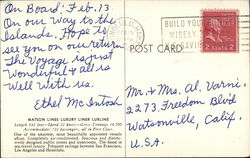 On Board; Feb. 13.
On our way to the
Islands. Hope to
see you on our return
The Voyage is just
Wonderful & all is
Well With us.
Ethel McIntosh
MATSON LINES LUXURY LINER LURLINE
Length 632 feet—Speed 20 knots—Gross Tonnage 18,500
Accommodates 722 passengers, all in First Class.
One of the smartest, most beautifully appointed vessels
afloat. Completely air-conditioned, luxurious and distinctively
designed public rooms and staterooms. The finest in
sea travel luxury. Frequent sailings between San Francisco,
Los Angeles and Honolulu.
BUILD YOUR
WISELY
POST CARD
Mr. & Mrs. Al. Varni.
2273 Freedom Blvd
Watsonville, Calif.
U.S.A.